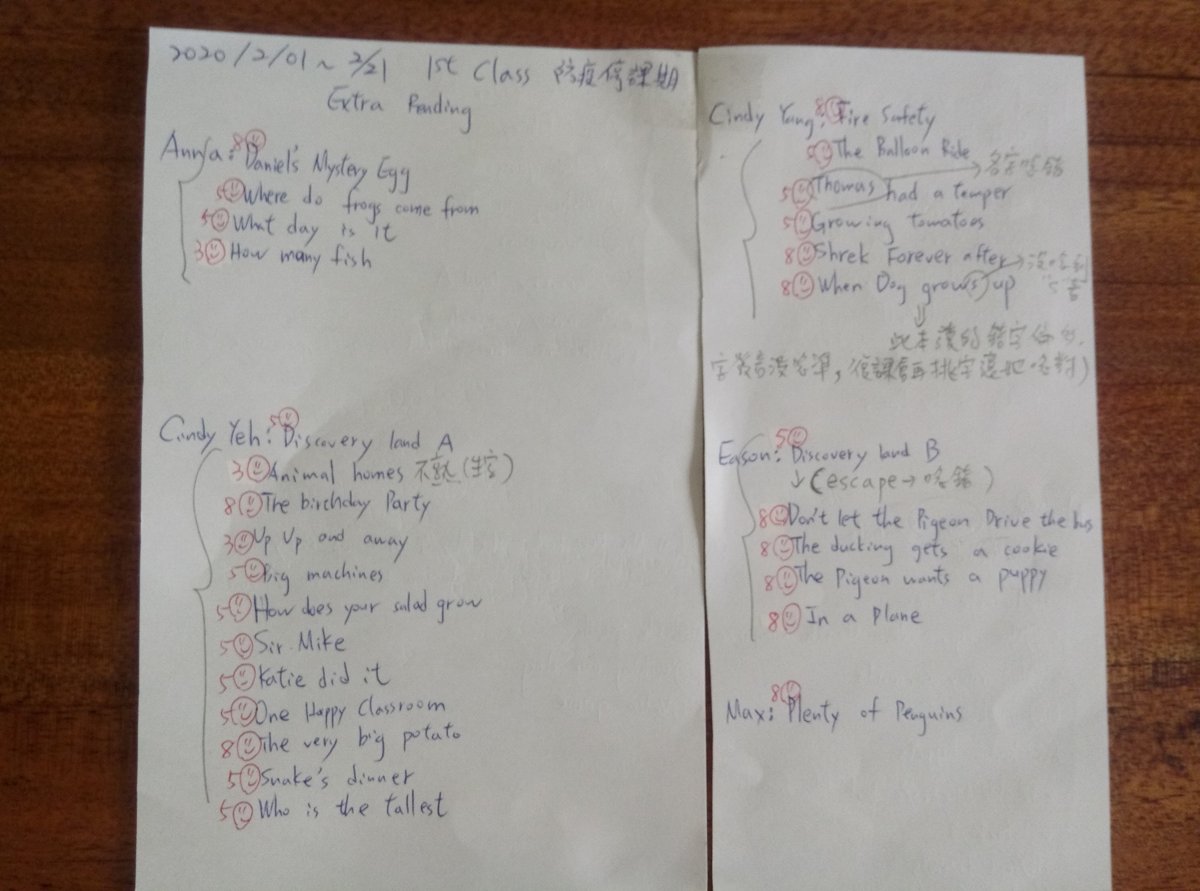 2020/2/01 ~ 2/21 1st Class 防疫停課期
Extra Reading
Annfa: 8 Daniel's Mystery Egg
5 Where do frogs come from
5 What day is it
3 How many fish
Cindy Yeh: 5 Discovery land A
3 Animal homes 不熟 (生字)
8 The birthday Party
3 Up Up and away
5 Big machines
5 How does your salad grow
5 Sir Mike
5 Katie did it
5 One Happy Classroom
8 The very big potato
5 Snake's dinner
5 Who is the tallest
Cindy Yang: 8 Fire Safety
The Balloon Ride
5 Thomas had a temper → 名字唸錯
5 Growing tomatoes
8 Shrek Forever after
8 When Dog grows up → 沒唸到 "s" 音
此本讀的錯字
字發音沒唸準, 復課會再挑字讓她唸對)
Eason: 5 Discovery land B
↓ (escape → 唸錯)
8 Don't let the Pigeon Drive the bus
8 The ducking gets a cookie
8 The Pigeon wants a puppy
8 In a plane
Max: 8 Plenty of Penguins